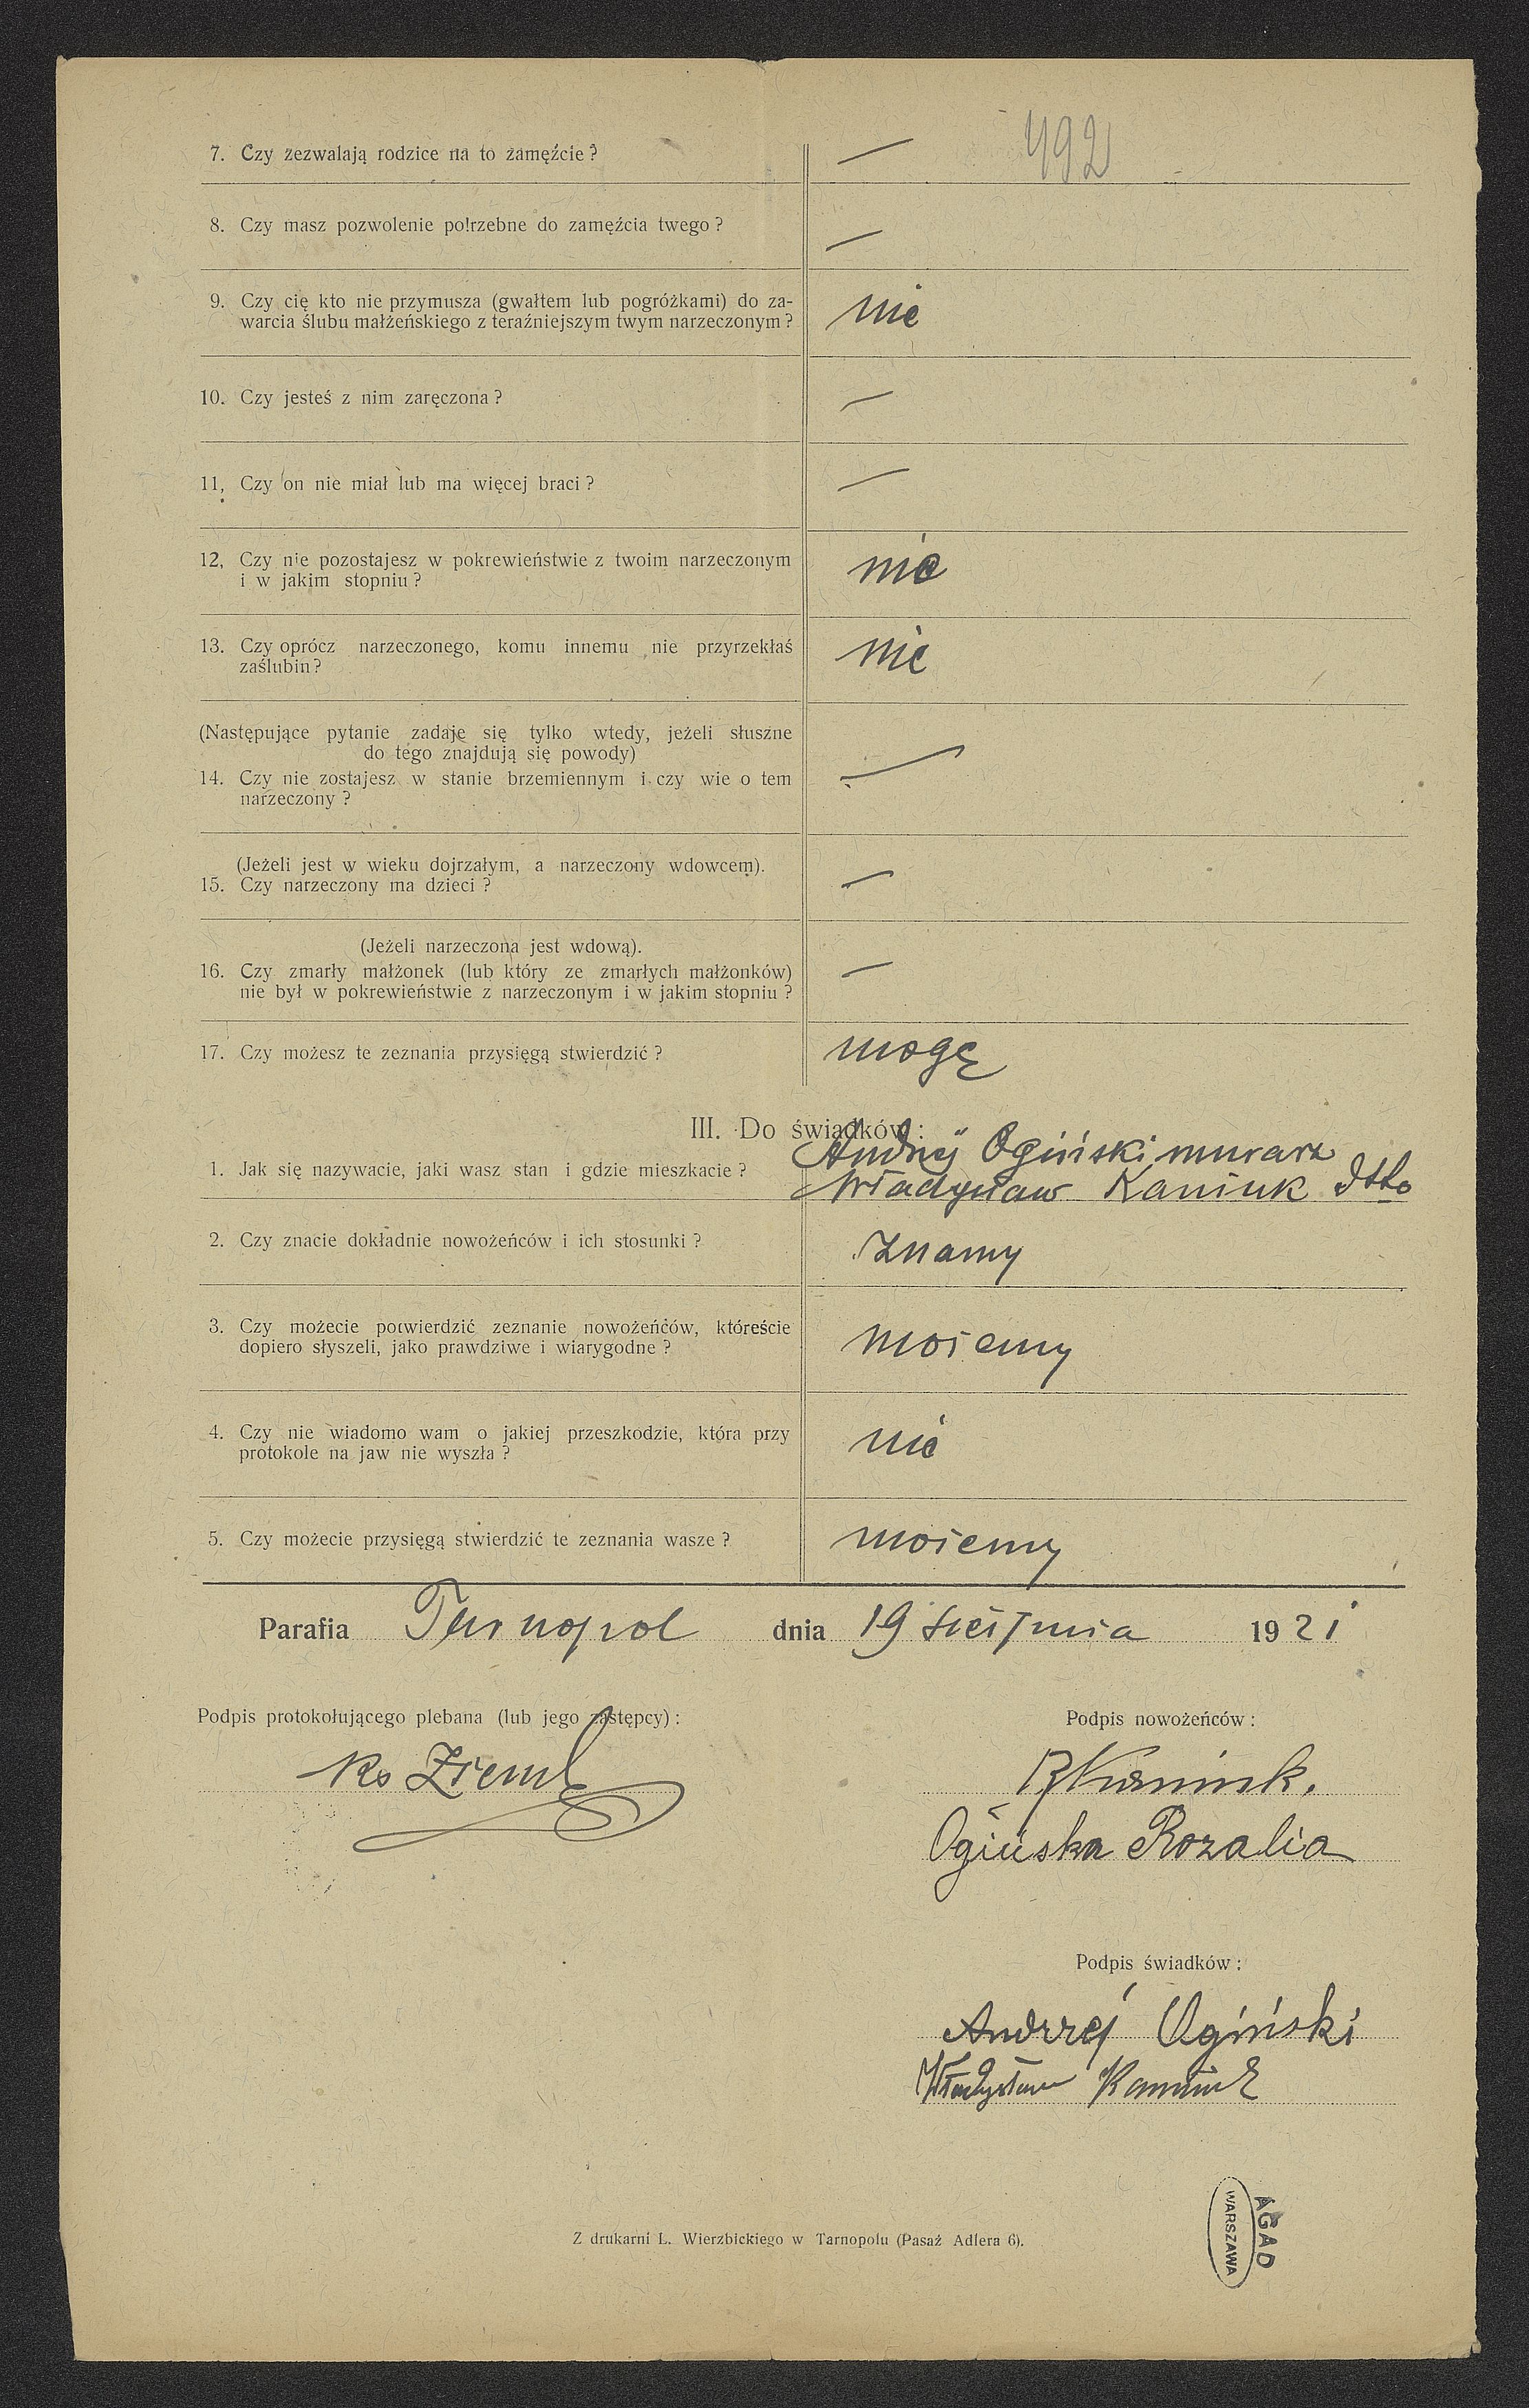 492
7. Czy zezwalają rodzice na to zamęźcie? —
8. Czy masz pozwolenie potrzebne do zamęźcia twego? —
9. Czy cię kto nie przymusza (gwałtem lub pogróżkami) do za-
warcia ślubu małżeńskiego z teraźniejszym twym narzeczonym? nie
10. Czy jesteś z nim zaręczona? —
11, Czy on nie miał lub ma więcej braci? —
12, Czy nie pozostajesz w pokrewieństwie z twoim narzeczonym
i w jakim stopniu? nie
13. Czy oprócz narzeczonego, komu innemu nie przyrzekłaś
zaślubin? nie
(Następujące pytanie zadaje się tylko wtedy, jeżeli słuszne
do tego znajdują się powody)
14. Czy nie zostajesz w stanie brzemiennym i czy wie o tem
narzeczony? —
(Jeżeli jest w wieku dojrzałym, a narzeczony wdowcem).
15. Czy narzeczony ma dzieci? —
(Jeżeli narzeczona jest wdową).
16. Czy zmarły małżonek (lub który ze zmarłych małżonków)
nie był w pokrewieństwie z narzeczonym i w jakim stopniu? —
17. Czy możesz te zeznania przysięgą stwierdzić? mogę
III. Do świadków:
1. Jak się nazywacie, jaki wasz stan i gdzie mieszkacie?
Andrzej Ogiński murarz
Władysław Kaniuk dtto
2. Czy znacie dokładnie nowożeńców i ich stosunki? znamy
3. Czy możecie potwierdzić zeznanie nowożeńców, któreście
dopiero słyszeli, jako prawdziwe i wiarygodne? możemy
4. Czy nie wiadomo wam o jakiej przeszkodzie, która przy
protokole na jaw nie wyszła? nie
5. Czy możecie przysięgą stwierdzić te zeznania wasze? możemy
Parafia Tarnopol dnia 19 sierpnia 1921
Podpis protokołującego plebana (lub jego zastępcy):
Ks
Podpis nowożeńców:
Kaniuk.
Ogińska Rozalia
Podpis świadków:
Andrzej Ogiński
Władysław Kaniuk
Z drukarni L. Wierzbickiego w Tarnopolu (Pasaż Adlera 6).
AGAD
WARSZAWA